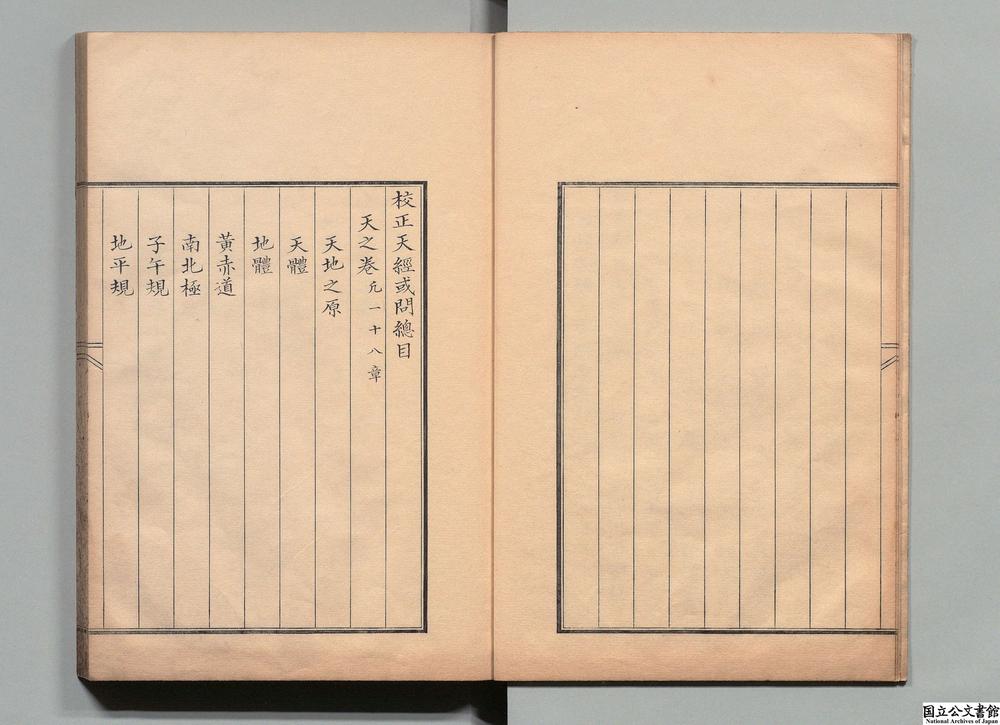 校正天經或問總目
天之卷凡一十八章
天地之原
天體
地體
黃赤道
南北極
子午規
地平規
国立公文書館
National Archives of Japan